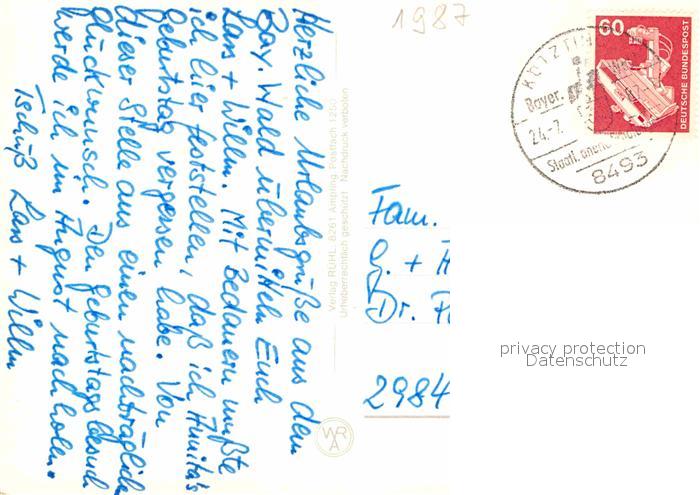 1987
Herzliche Urlaubsgrüße aus dem
Bay. Wald übermitteln Euch
Lars + Willm. Mit Bedauern mußte
ich hier feststellen, daß ich Anita's
Geburtstag vergessen habe. Von
dieser Stelle aus einen nachträglichen
Glückwunsch. Den Geburtstagsbesuch
werde ich im August nachholen.
Tschüß Lars + Willm
Verlag RUHL, 8261 Ampfing, Postfach 1250
Urheberrechtlich geschützt Nachdruck verboten
WRA
Fam.
G. + H
Dr. Fr
2984
60
DEUTSCHE BUNDESPOST
KÖTZTIN
Bayer. Wald
24.-7.
Staatl. anerk
8493
privacy protection
Datenschutz